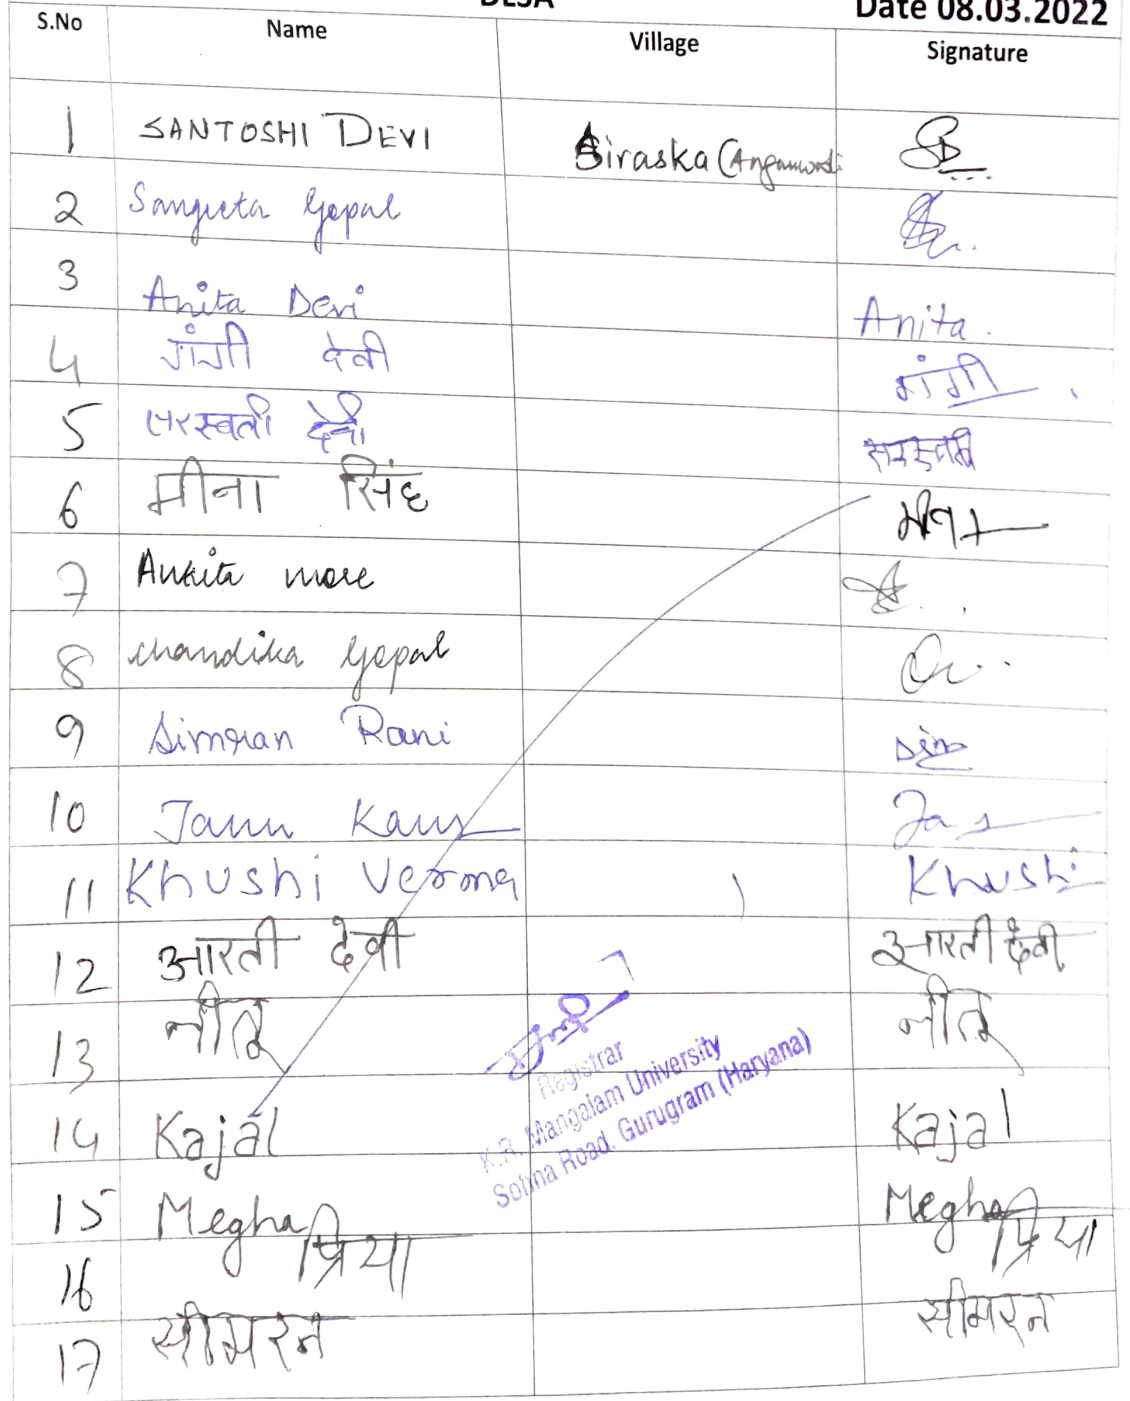 Date 08.03.2022
S.No Name Village Signature
1 SANTOSHI DEVI Siraska (Anganwadi SD
2 Sangeeta Gopal
3 Anita Devi Anita
4 गंगी देवी गंगी
5 सरस्वती देवी सरस्वती
6 मीना सिंह मीना
7 Ankita more
8 Chandika Gopal
9 Simran Rani Sim
10 Kaur Jas
11 Khushi Verma Khushi
12 आरती देवी आरती देवी
13 नीतू नीतू
14 Kajal Kajal
15 Megha Megha
16 प्रिया प्रिया
17 सीमरन सीमरन
Registrar
K.R. Mangalam University
Sohna Road, Gurugram (Haryana)